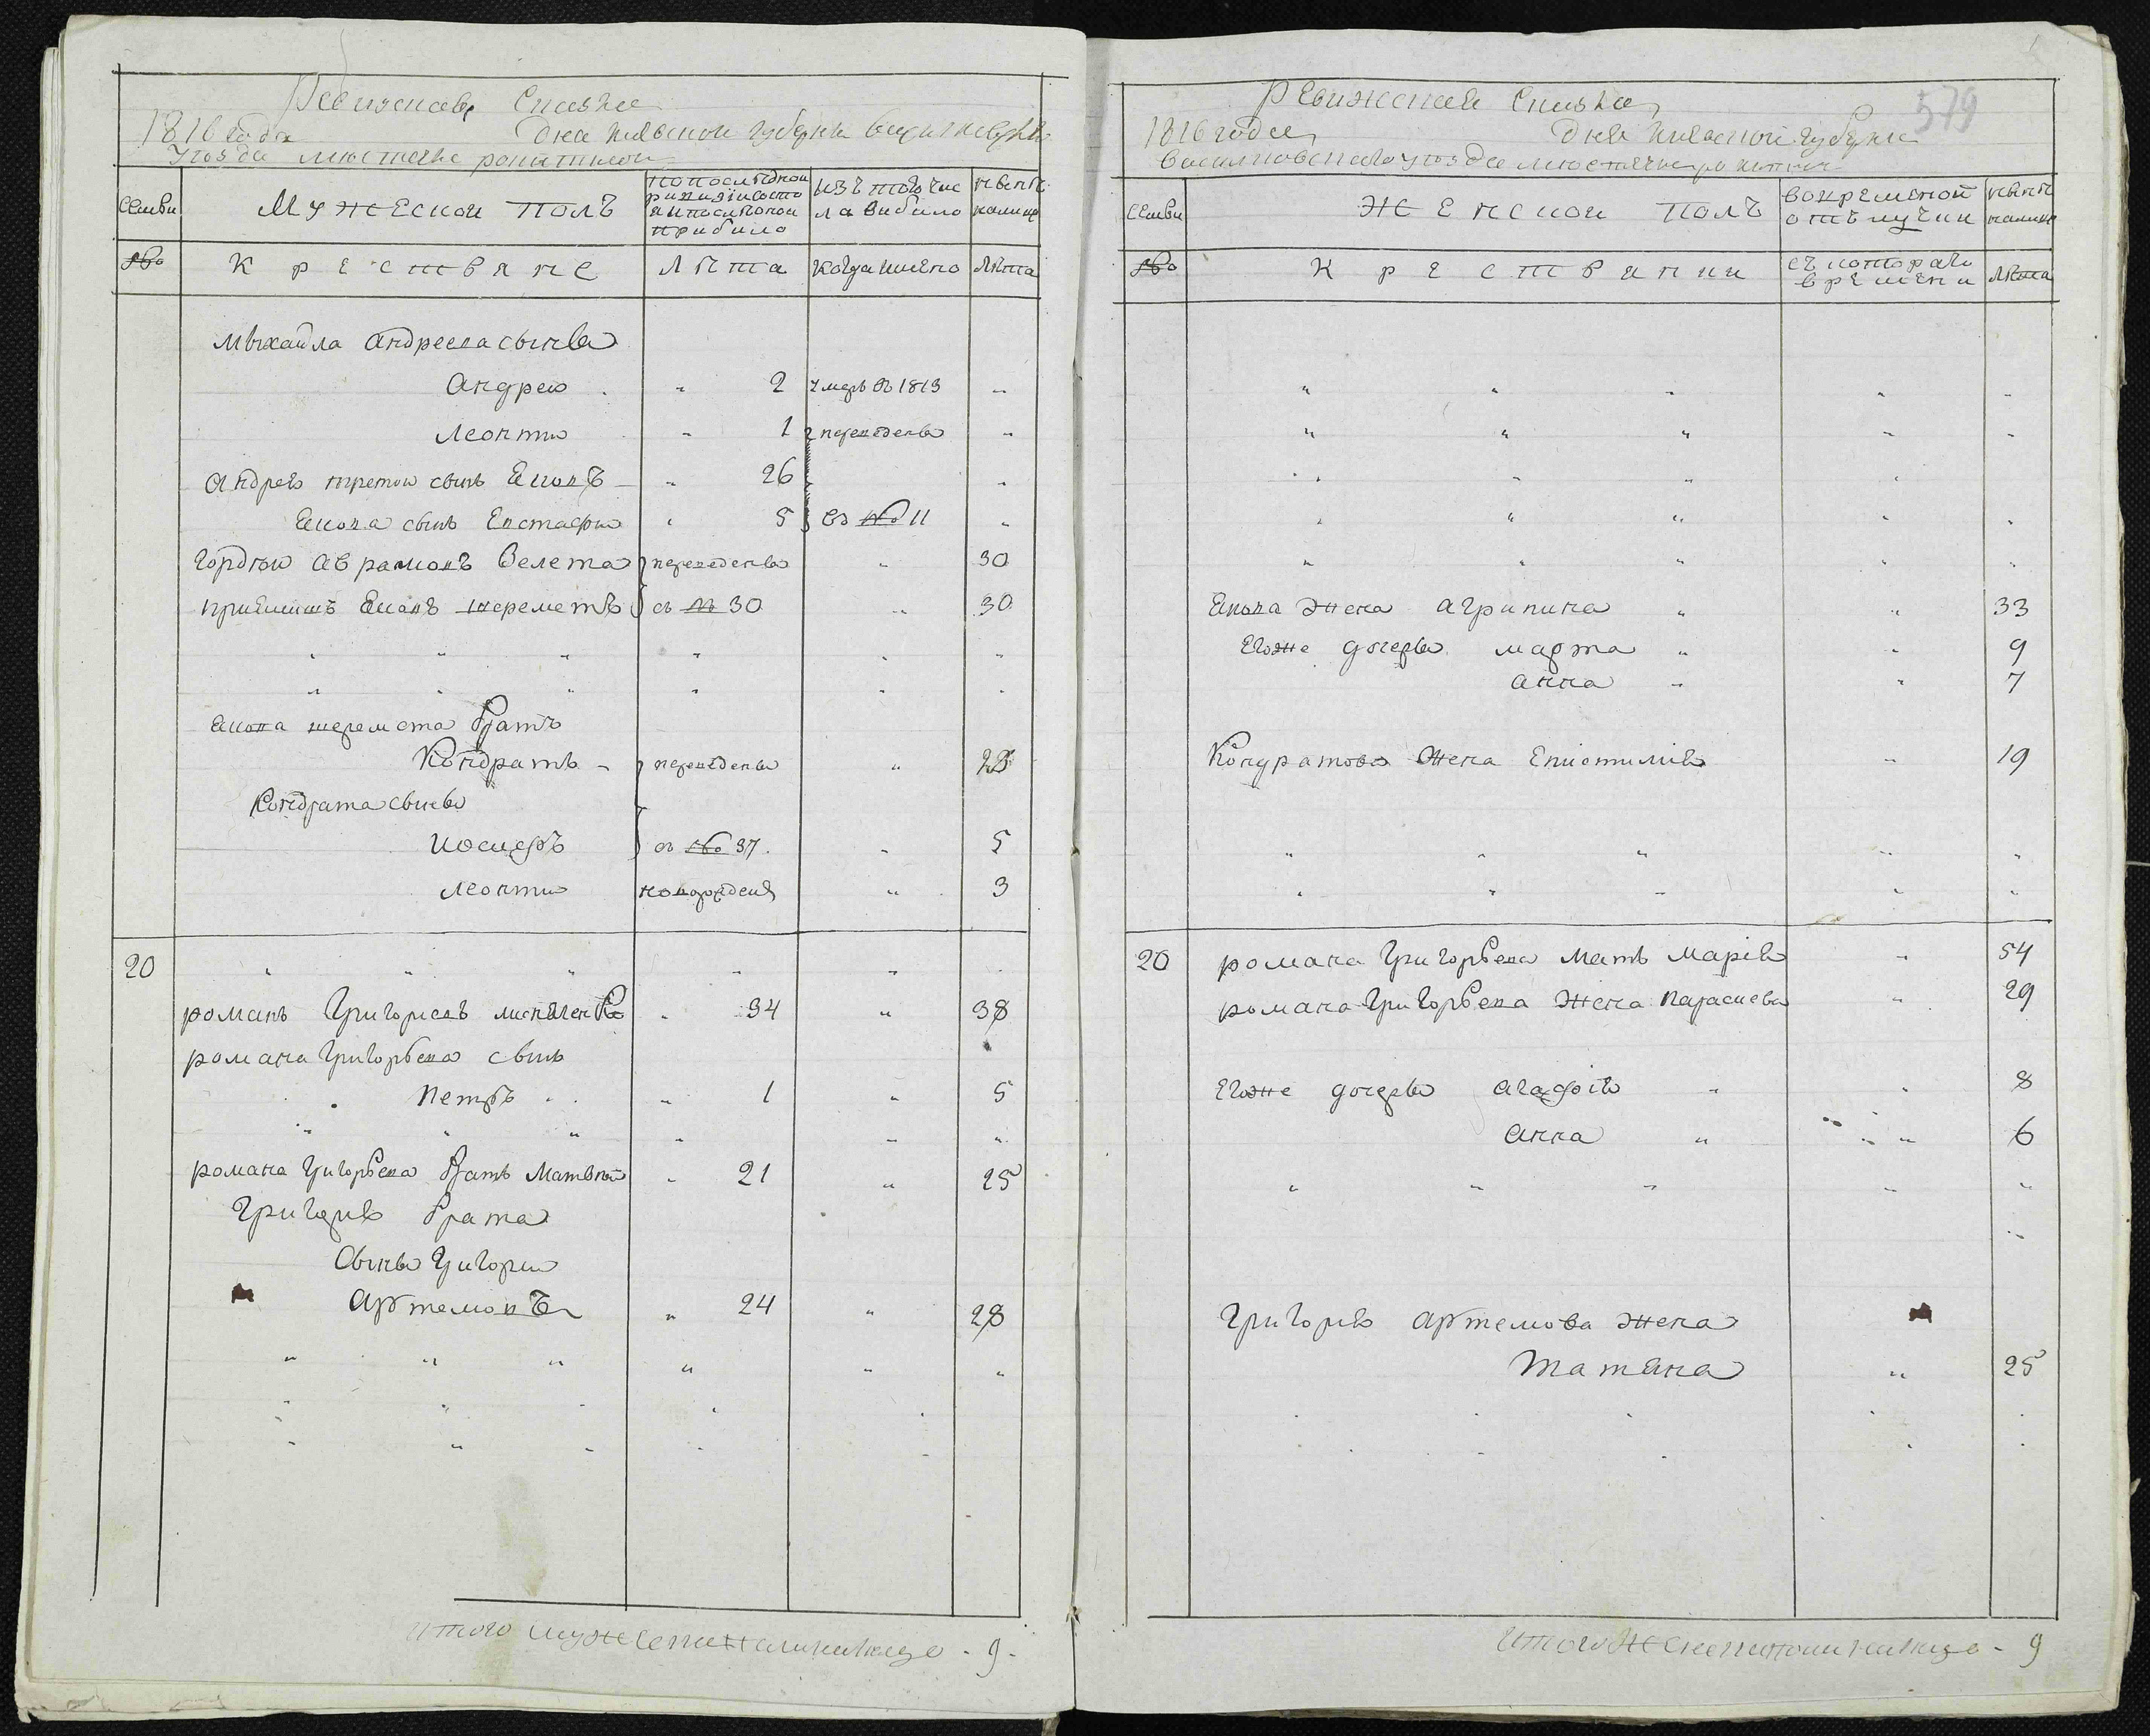 Ревизская Сказка
1816 года Дня Киевской губернии
уезда местечка
семьи
Мужеской полъ
По последной ревизіи состояло и после оной прибыло
изъ того числа выбыло
ныне налицо
№
Крестьяне
Лета
когда именно
Лета
Михайла Андреева сыновья
Андрей 2 умеръ въ 1813
Леонти 1 переведены
Андрея третой сынъ Екопъ 26
Екопа сынъ Евстафи 5 въ № 11
Гордѣй Аврамовъ Велета переведены 30
приемишъ Екопъ шереметъ съ № 30 30
Екопа шеремета братъ
Кондратъ переведены 28
Кондрата сыновья
Иосифъ съ № 37. 5
Леонти новорожденъ 3
20
романъ Григориевъ 34 38
романа Григорьева сынъ
Петръ 1 5
романа Григорьева братъ Матвѣй 21 25
Григория брата
Сынъ Григори
Артемовъ 24 28
итого мужеска налицо - 9 -
579
Ревижская Сказка
1816 года Дня Киевской губернии
Васильковскаго уезда местечка
семьи
Женской полъ
во временной отълучки
ныне налицо
№
Крестьянки
съ которого времени
Лета
Екопа жена агрипина 33
Егоже дочеры марта 9
анна 7
Кондратова жена Епистимія 19
20 романа Григорьева мать Марія 54
романа Григорьева жена Параскева 29
Егоже дочеры агафія 8
анна 6
Григория артемова жена
Татяна 25
итого женска налицо - 9